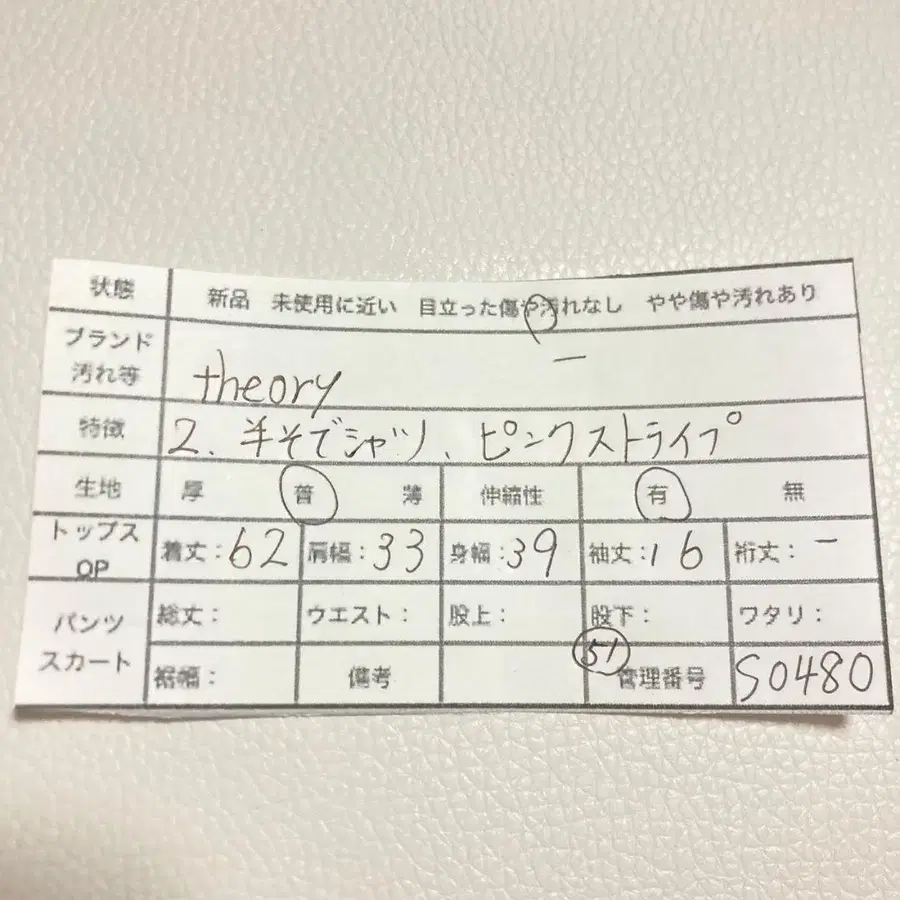 状態 新品 未使用に近い 目立った傷や汚れなし やや傷や汚れあり
ブランド
汚れ等 theory ー
特徴 2、半そでシャツ、ピンクストライプ
生地 厚 普 薄 伸縮性 有 無
トップス
OP 着丈:62 肩幅:33 身幅:39 袖丈:16 裄丈:ー
パンツ
スカート 総丈: ウエスト: 股上: 股下: ワタリ:
裾幅: 備考 51 管理番号 S0480